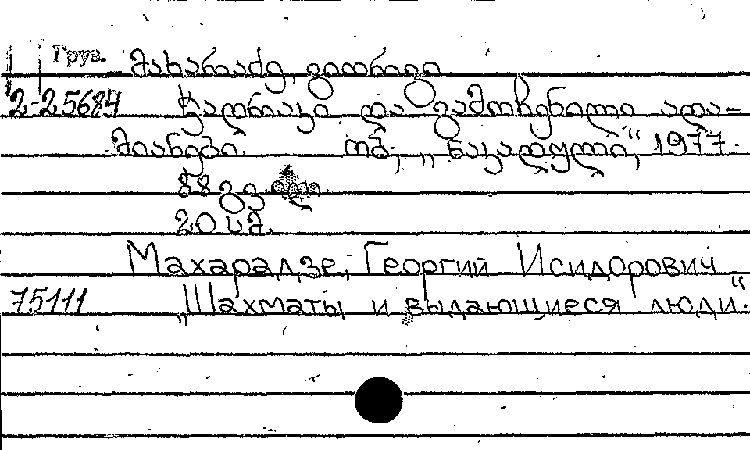 Груз. მახარაძე, გიორგი
2-25684 ჭადრაკი და გამოჩენილი ადა-
მიანები. თბ., „ნაკადული“, 1977.
88 გვ.
20 სმ.
Махарадзе, Георгий Исидорович
75111 „Шахматы и выдающиеся люди“.